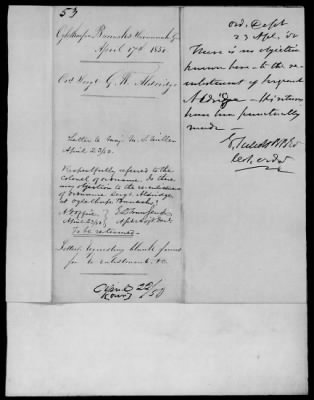 53
Oglethorpe Barracks Savannah Ga
April 17th 1850
Ord. Sergt G. W. Aldridge
Letter to Maj. M. S. Miller
April 23/50.
Respectfully referred to the
Colonel of ordnance. Is there
any objection to the re-enlistment
of Ordnance Sergt Aldridge,
at Oglethorpe Barracks?
A. G. Office
April 23/50
To be returned.
Letter, requesting blank forms
for re enlistment, &c.
22/50
Ord. Dept
23 Apl. 50
There is no objection
known here to the re-
enlistment of Sergeant
Aldridge - His returns
have been punctually
made -